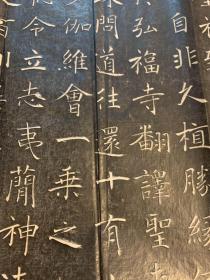 自非久植勝緣
弘福寺翻譯聖
問道往還十有
伽維會一乘之
令立志夷蕳神